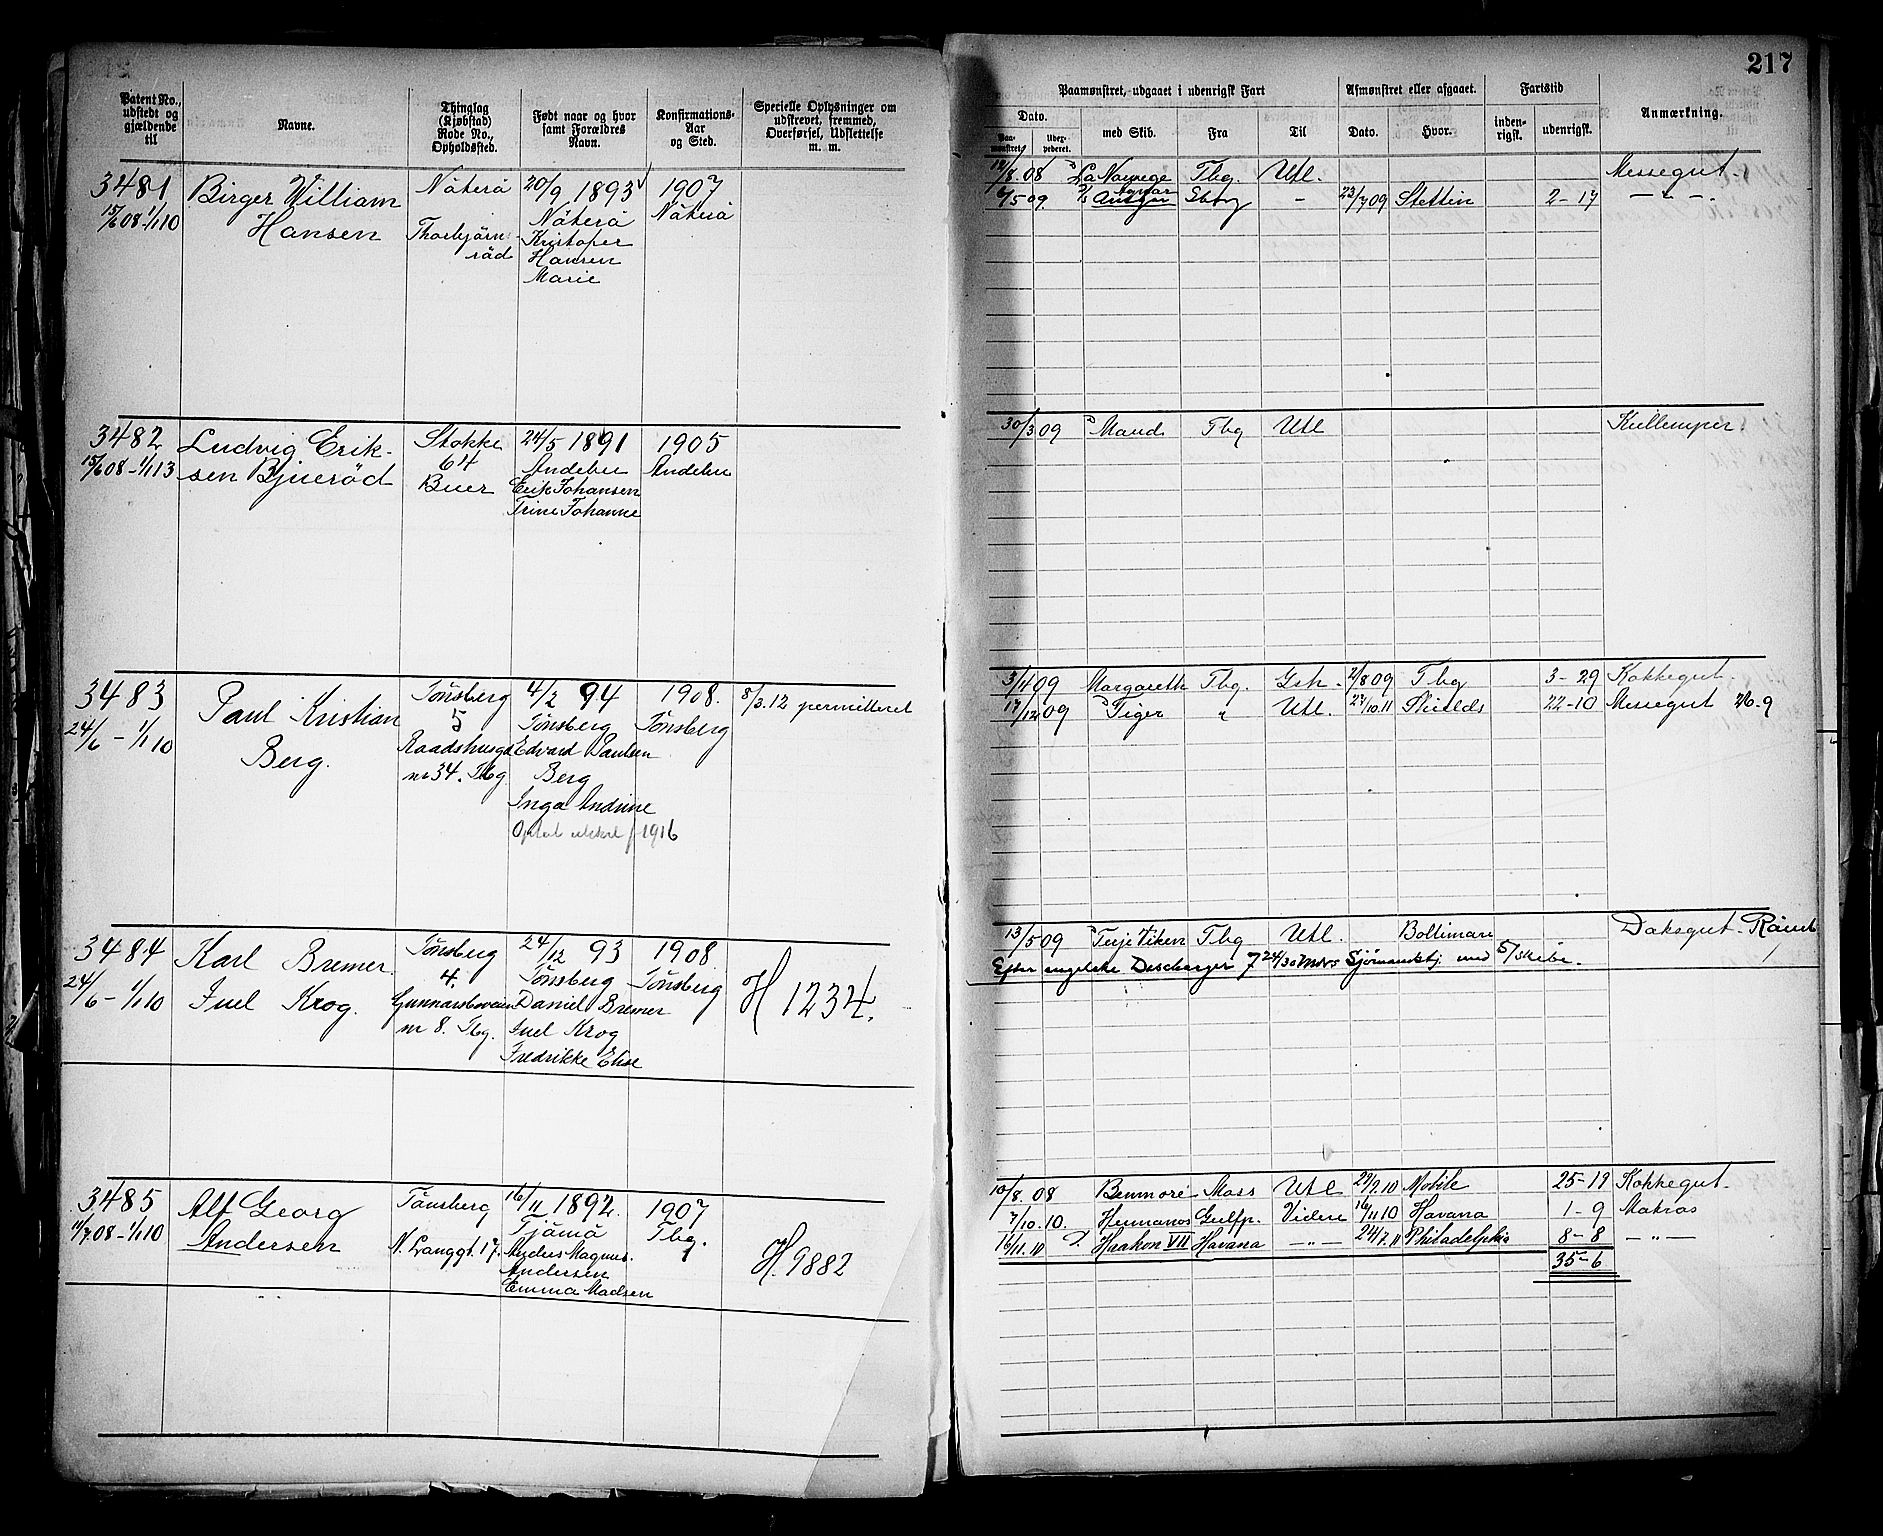 217
Patent No., udstedt og gjældende til
Navne.
Thinglag (Kjøbstad) Rode No., Opholdssted.
Født naar og hvor samt Forældres Navn.
Konfirmations-Aar og Sted.
Specielle Oplysninger om udstrevet, fremmed, Overførsel, Udslettelse m. m.
Paamønstret, udgaaet i udenrigsk Fart
Dato.
Paamønstret.
med Skib.
Fra
Til
Afmønstret eller afgaaet.
Dato.
Hvor.
Fartstid
indenrigsk.
udenrigsk.
Anmærkning.
3481
15/6 08-1/1 10
Birger William
Hansen
Nöterö
Thorbjörn
röd
20/9 1893
Nöterö
Kristofer
Hansen
Marie
1907
Nöterö
12/8 08 La Norvege Tbg. Utl. Messegut.
6/5 09. Sbg - 23/7 09 Stettin 2-17 - " -.
3482
15/6 08-1/1 13
Ludvig Erik-
sen Bjueröd
Stokke
64
Buer
24/5 1891
Andebu
Erik Johansen
Trine Johanne
1905
Andebu
30/3 09 Maud Tbg Utl Kullemper.
3483
24/6 - 1/1 10
Paul Kristian
Berg.
Tönsberg
5
Raadshusgd
nr 34. Tbg
4/2 94
Tönsberg
Edvard Paulsen
Berg
Inga Andrine
1916
1908.
Tönsberg
8/3.12 permitteret
3/4 09 Margareth Tbg. Gsh. 2/8 09 Tbg 3-29 Kokkegut.
17/12 09 Tiger " Utl. 27/10.11 Shields 22-10 Messegut 26-9
3484
24/6 - 1/1 10
Karl Bremer
Juel Krog.
Tönsberg
4.
Gunnarsboveien
nr 8. Tbg.
24/12 93
Tönsberg
Daniel Bremer
Juel Krog
Fredrikke Elise
1908
Tönsberg
H 1234.
13/5 09 Terje Viken Tbg Utl. Boltimare Daksgut.
Efter engelske Descharger 7 24/30 Mdrs Sjömandstj. med 5/skibe.
3485
11/7 08-1/1 10
Alf Georg
Andersen
Tönsberg
N. Langgt. 17.
16/11 1892.
Tjömö
Anders Magnus
Andersen
Emma Madsen
1907
Tbg.
H. 9882
10/8. 08 Benmore Moss Utl 29/9.10 Mobile 25-19 Kokkegut.
7/10. 10. Hermanos Gulfp. Videre 16/11 10 Havana 1-9 Matros
16/11. 10 Haakon VII Havana -"- 24/7.11 Philadelphia 8-8 -"-
35-6